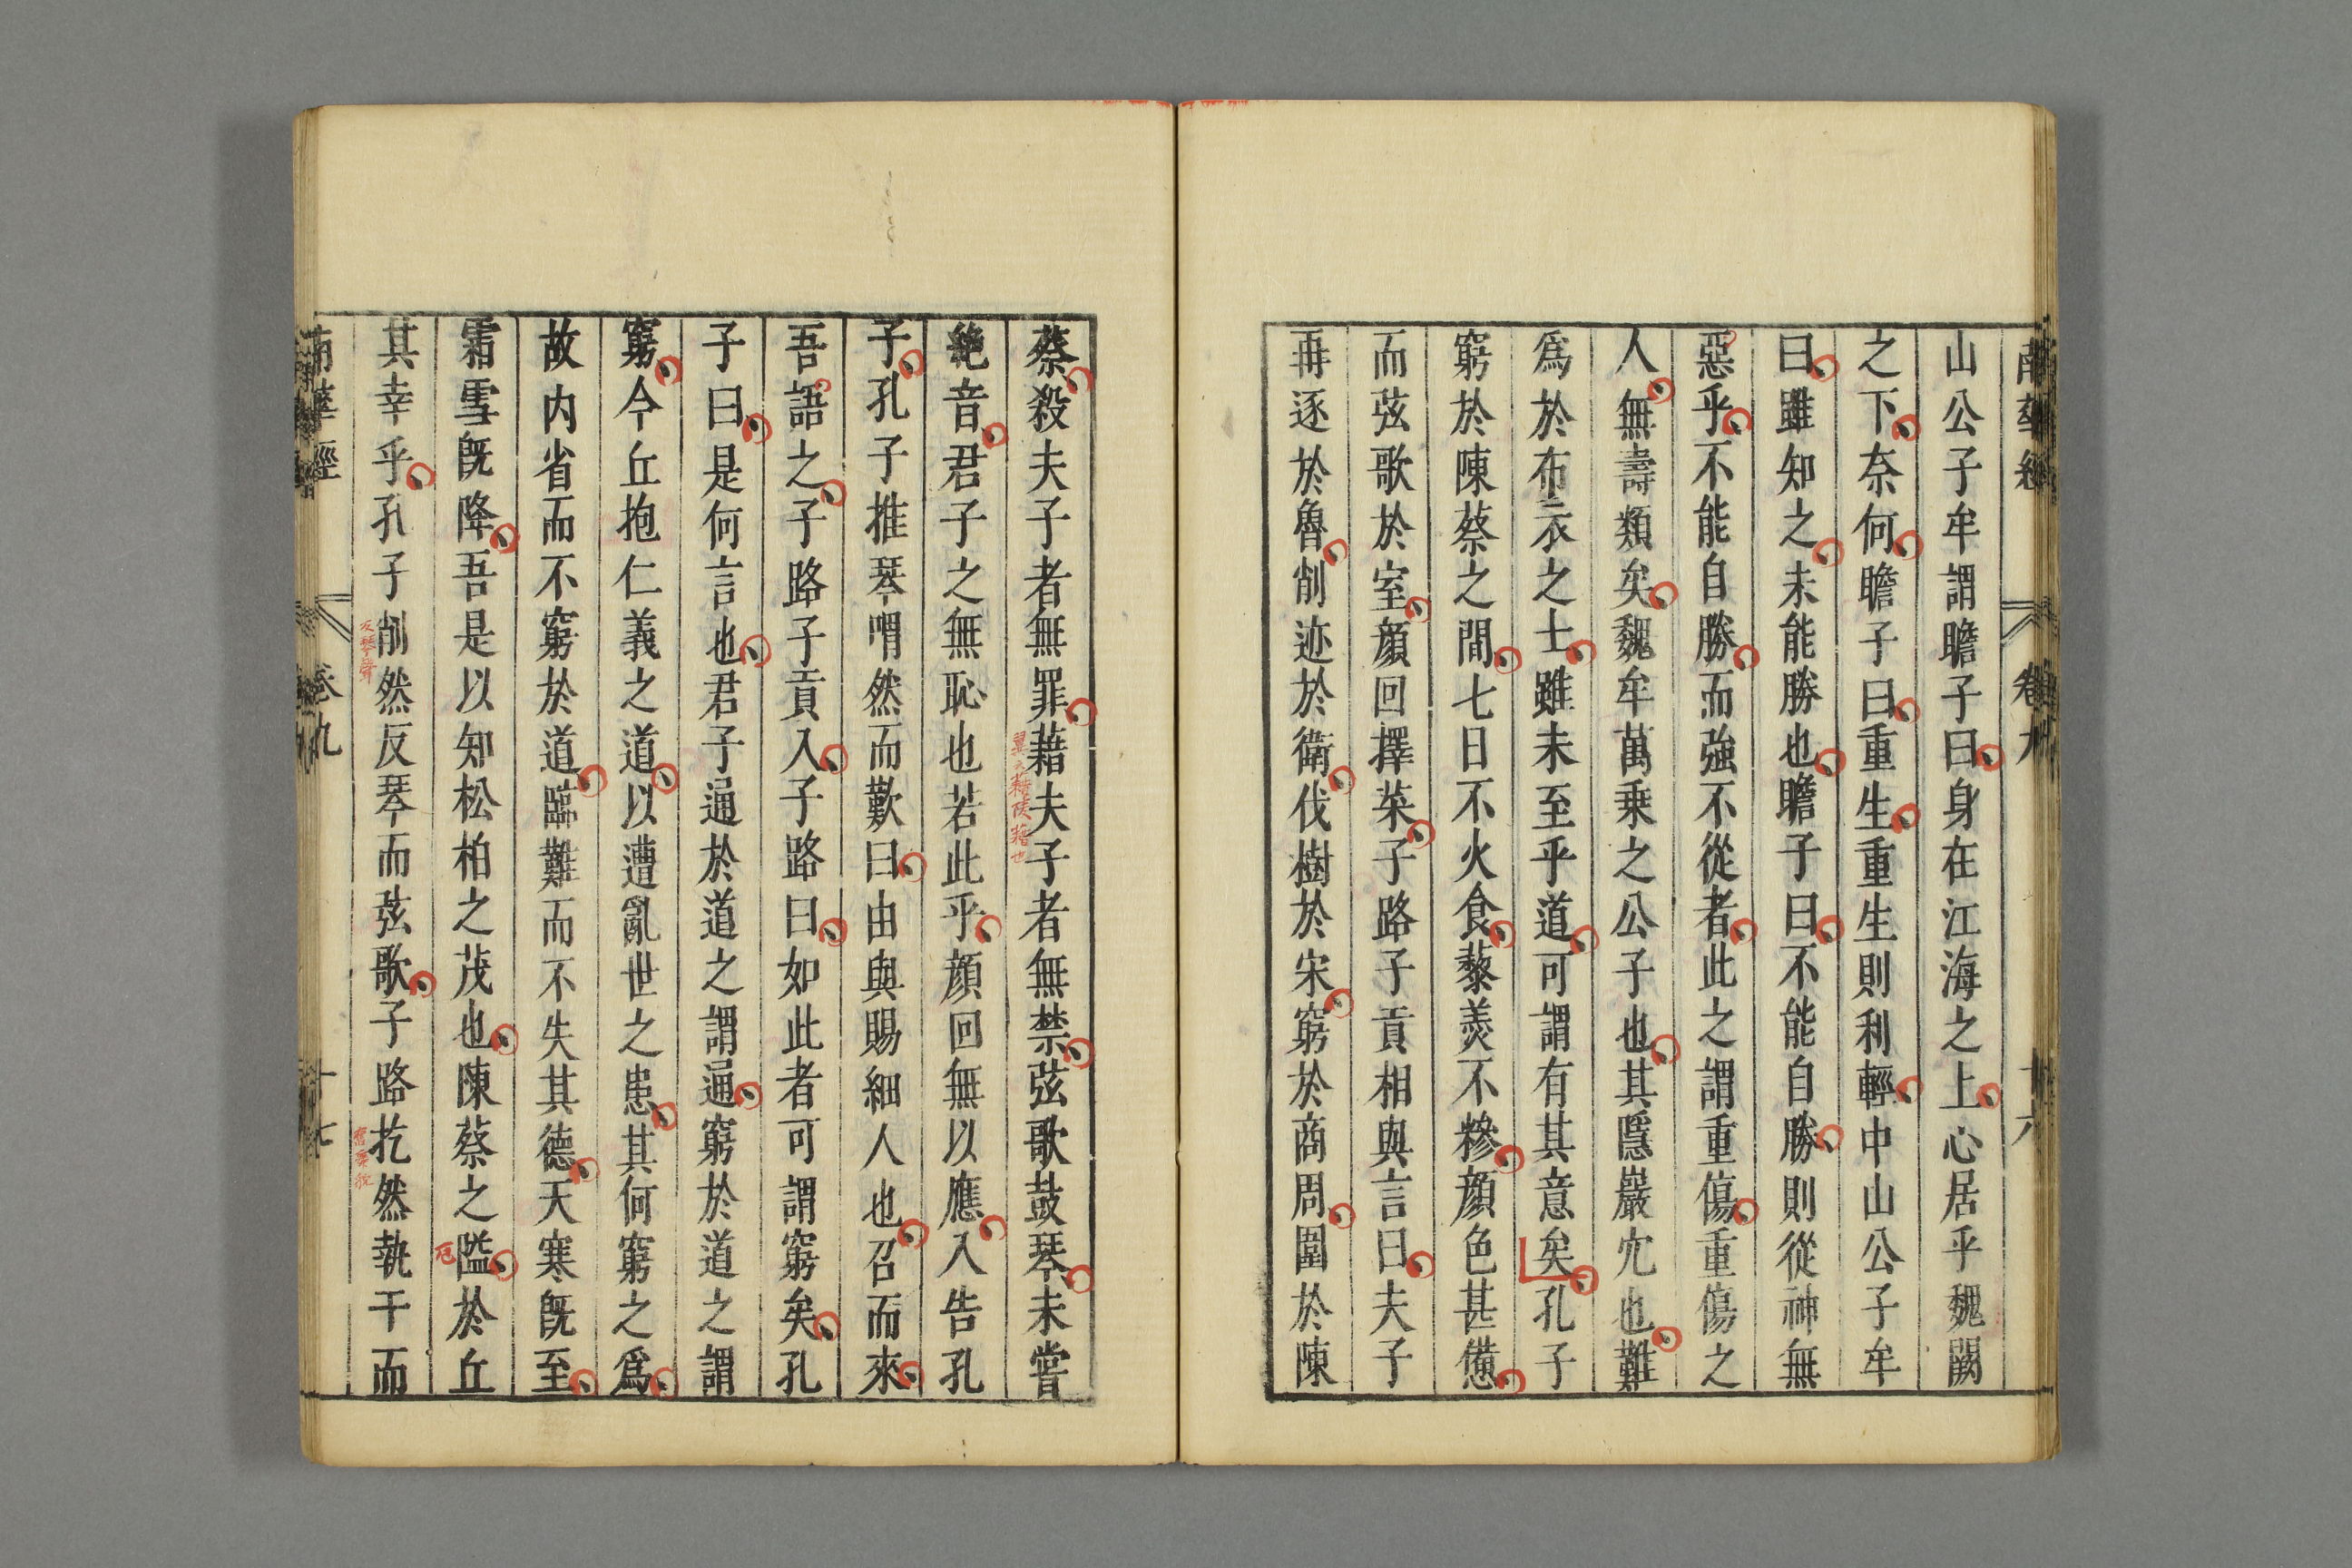 南華經 卷九 十六
山公子牟謂瞻子曰身在江海之上心居乎魏闕
之下奈何瞻子曰重生重生則利輕中山公子牟
曰雖知之未能勝也瞻子曰不能自勝則從神無
惡乎不能自勝而強不從者此之謂重傷重傷之
人無壽類矣魏牟萬乗之公子也其隱巖穴也難
爲於布衣之士雖未至乎道可謂有其意矣孔子
窮於陳蔡之間七日不火食藜羮不糝顔色甚憊
而弦歌於室顔回擇菜子路子貢相與言曰夫子
再逐於魯削迹於衛伐樹於宋窮於商周圍於陳
蔡殺夫子者無罪藉夫子者無禁弦歌鼓琴未嘗
絶音君子之無恥也若此乎顔回無以應入告孔
子孔子推琴喟然而歎曰由與賜細人也召而來
吾語之子路子貢入子路曰如此者可謂窮矣孔
子曰是何言也君子通於道之謂通窮於道之謂
窮今丘抱仁義之道以遭亂世之患其何窮之爲
故内省而不窮於道臨難而不失其德天寒旣至
霜雪旣降吾是以知松柏之茂也陳蔡之隘於丘
其幸乎孔子削然反琴而弦歌子路扢然執干而
南華經 卷九 十七
反琴聲